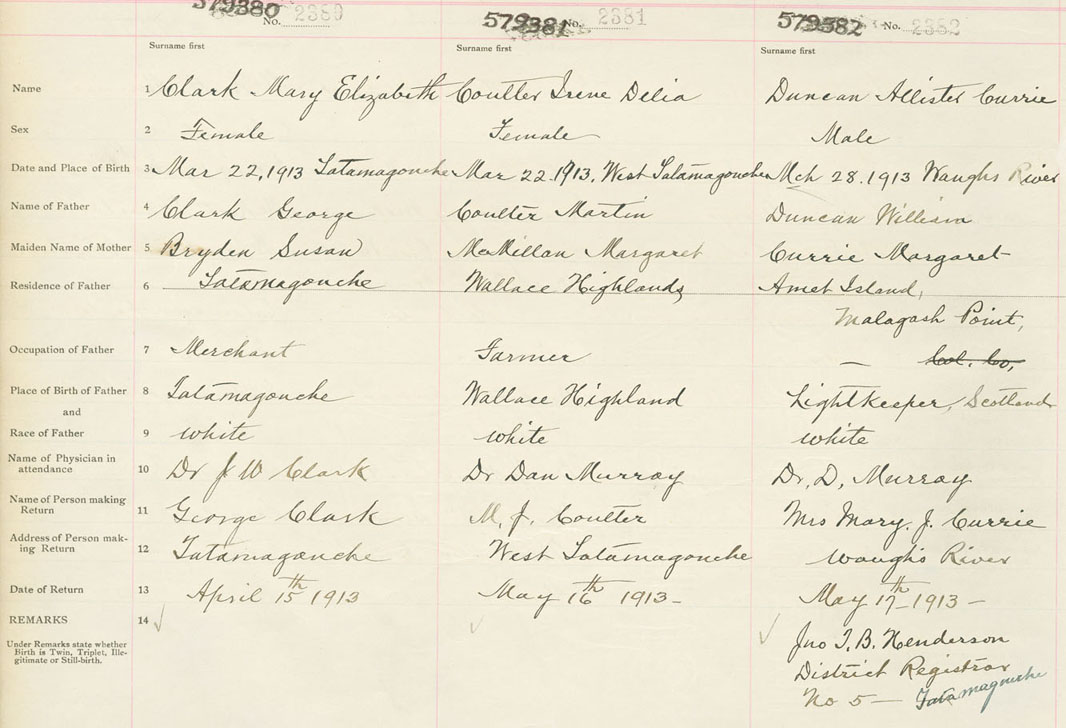 579380 No. 2380 579381 No. 2381 579382 No. 2382
Surname first Surname first Surname first
Name 1 Clark Mary Elizabeth Coulter Irene Delia Duncan Allister Currie
Sex 2 Female Female Male
Date and Place of Birth 3 Mar 22, 1913 Tatamagouche Mar 22. 1913. West Tatamagouche Mch 28. 1913 Waughs River
Name of Father 4 Clark George Coulter Martin Duncan William
Maiden Name of Mother 5 Bryden Susan McMillan Margaret Currie Margaret
Residence of Father 6 Tatamagouche Wallace Highlands Amet Island,
Malagash Point,
Occupation of Father 7 Merchant Farmer — Col. Co,
Place of Birth of Father 8 Tatamagouche Wallace Highland Lightkeeper, Scotland
and
Race of Father 9 white white white
Name of Physician in
attendance 10 Dr J W Clark Dr Dan Murray Dr. D. Murray
Name of Person making
Return 11 George Clark M. J. Coulter Mrs Mary. J. Currie
Address of Person mak-
ing Return 12 Tatamagouche West Tatamagouche Waughs River
Date of Return 13 April 15th 1913 May 16th 1913- May 17th 1913-
REMARKS 14
Under Remarks state whether
Birth is Twin, Triplet, Ille-
gitimate or Still-birth.
Jno T. B. Henderson
District Registrar
No 5 — Tatamagouche